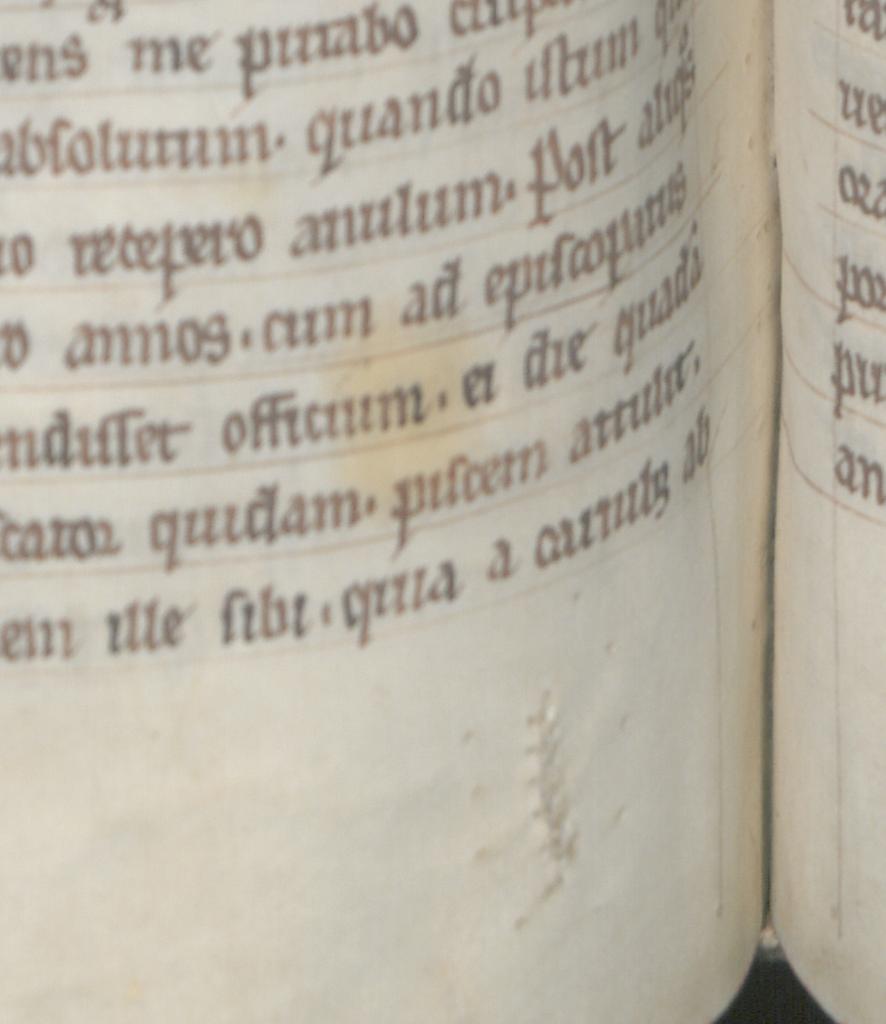 ens me putabo culpa
absolutum. quando istum
recepero anulum. Post aliqͦs
annos. cum ad episcopatus
endisset officium. et die quadā
scator quidam. piscem attulit.
em ille sibi. quia a carnibꝫ ab
ue
ora
por
pu
an